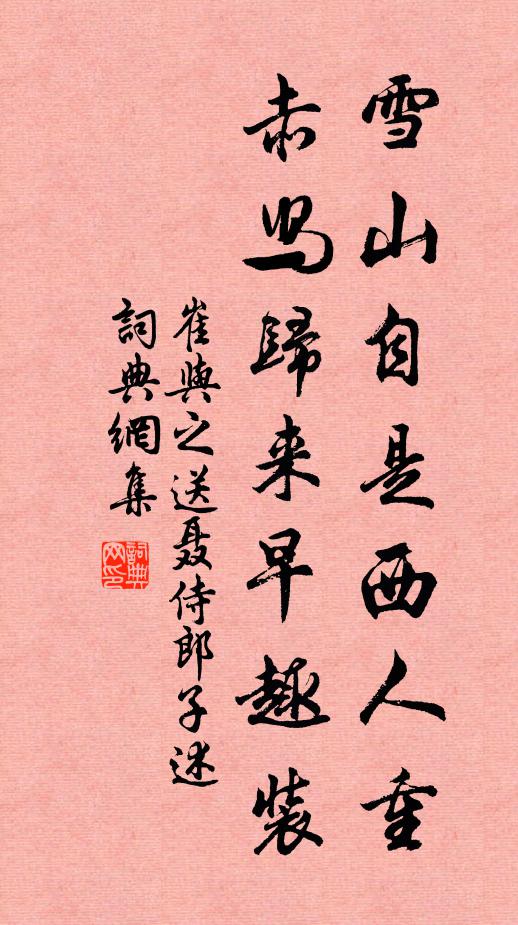 雪山自是西人重
赤舄歸来早趣裝
崔與之送聂侍郎子述
詞典網集
詞典
网印